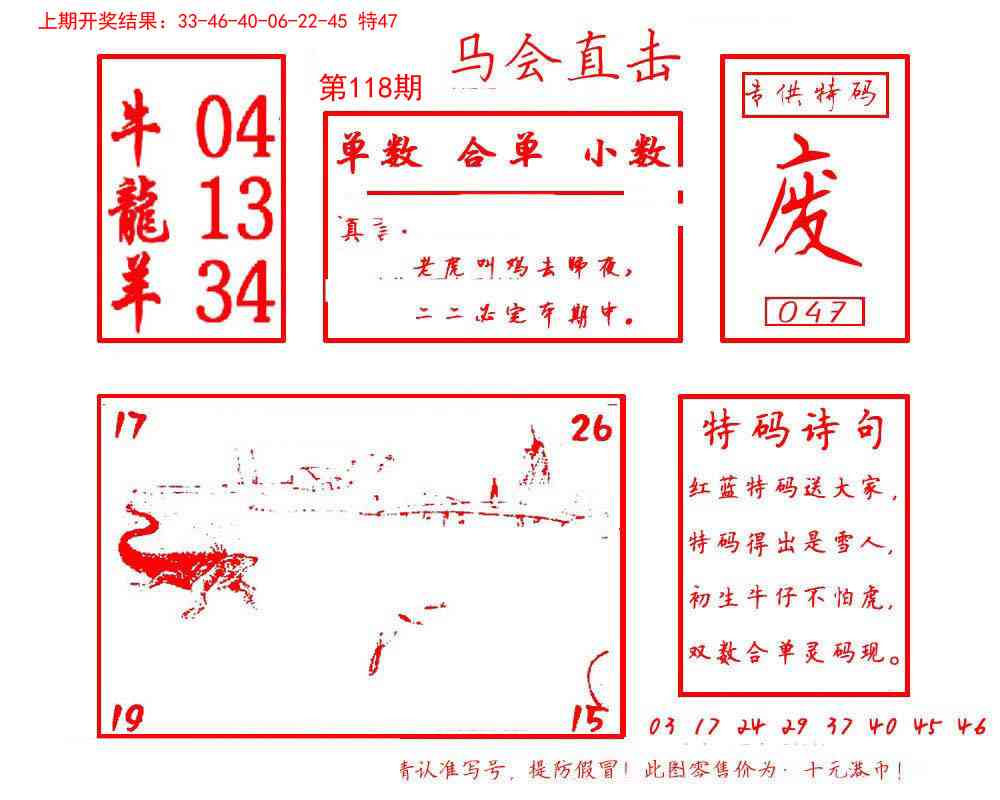 上期开奖结果：33-46-40-06-22-45 特47
马会直击
第118期
牛 04
龍 13
羊 34
单数 合单 小数
真言.
老虎叫鸡去睇夜,
二二必定本期中。
专供特码
废
047
17
26
19
15
特码诗句
红蓝特码送大家,
特码得出是雪人,
初生牛仔不怕虎,
双数合单灵码现。
03 17 24 29 37 40 45 46
请认准写号, 提防假冒! 此图零售价为· 十元港币!